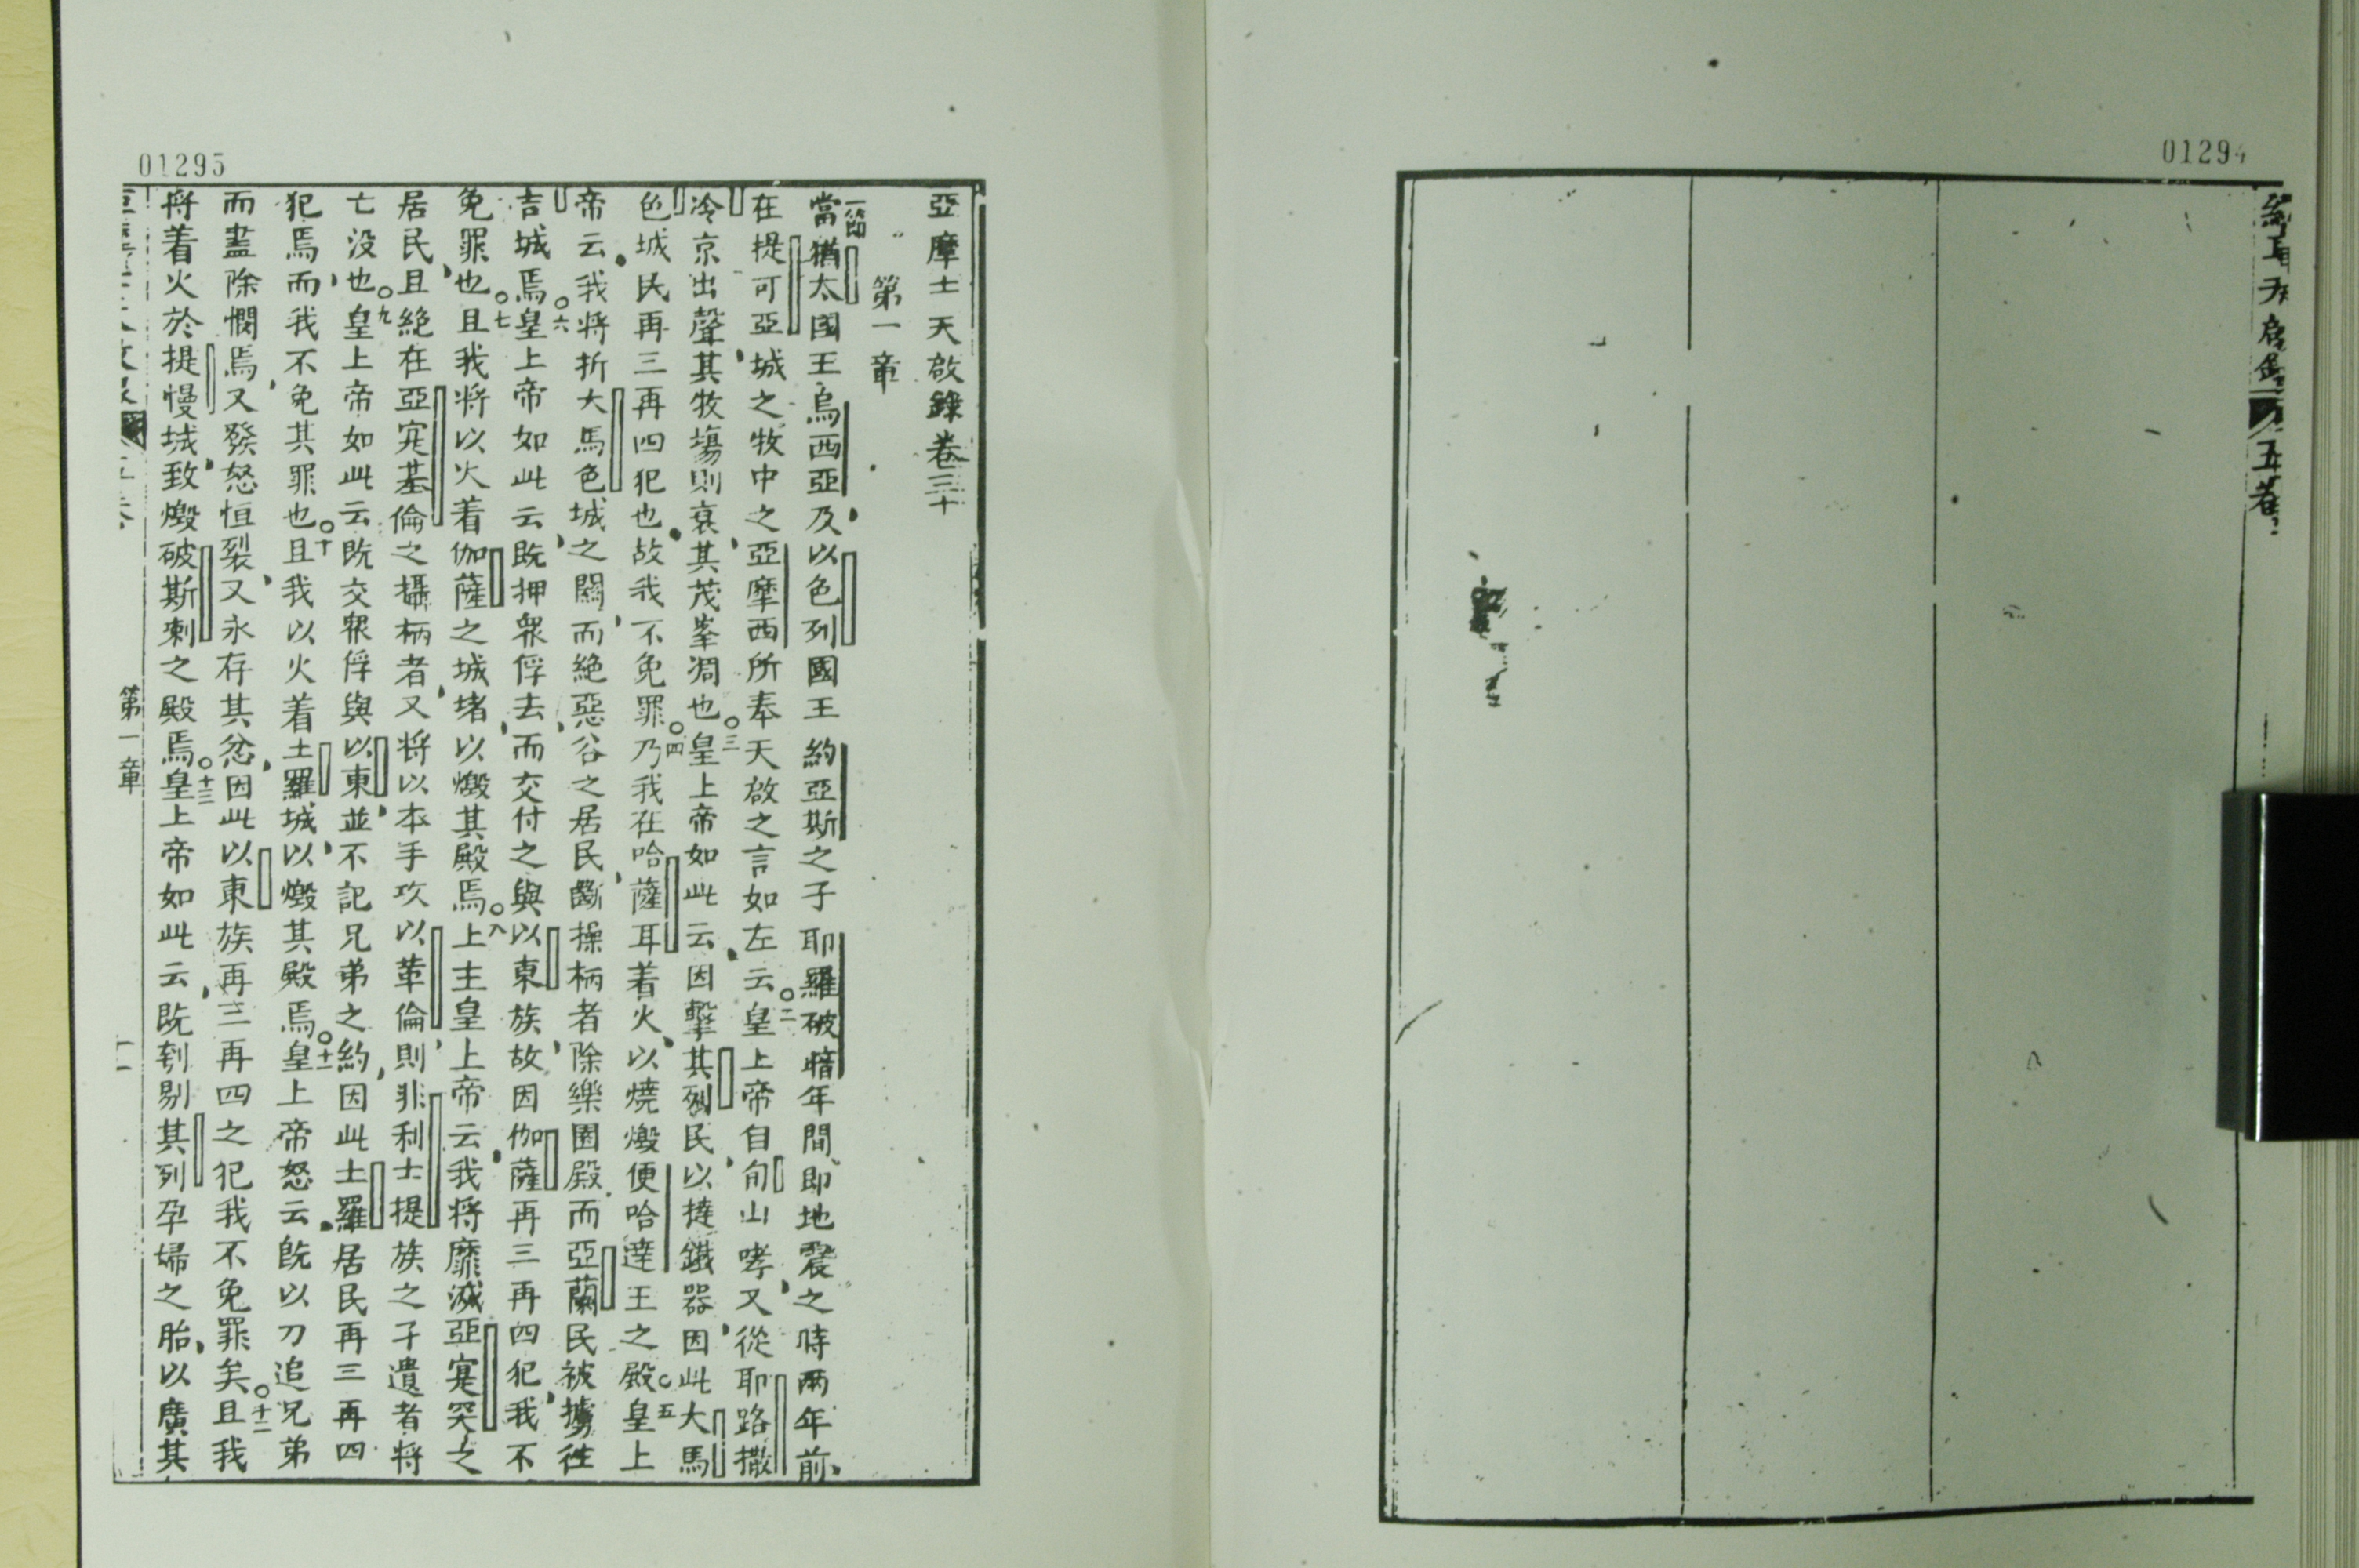 01294
01295
亞摩士天啟錄卷三十
第一章
一節
當猶太國王烏西亞及以色列國王約亞斯之子耶羅破暗年間即地震之時兩年前
在提可亞城之牧中之亞摩西所奉天啟之言如左云○二皇上帝自旬山哮又從耶路撒
冷京出聲其牧塲則哀其茂峯凋也○三皇上帝如此云因擊其列民以撻鐵器因此大馬
色城民再三再四犯也故我不免罪○四乃我在哈薩耳着火以燒燬便哈達王之殿○五皇上
帝云我將折大馬色城之闗而絕惡谷之居民斷操柄者除樂園殿而亞蘭民被擄徃
吉城焉○六皇上帝如此云既押衆俘去而交付之與以東族故因伽薩再三再四犯我不
免罪也○七且我將以火着伽薩之城堵以燬其殿焉○八上主皇上帝云我將靡滅亞寔突之
居民且絕在亞寔基倫之攝柄者又將以本手攻以革倫則非利士提族之孑遺者將
亡没也○九皇上帝如此云既交衆俘與以東並不記兄弟之約因此土羅居民再三再四
犯焉而我不免其罪也○十且我以火着土羅城以燬其殿焉○十一皇上帝怒云既以刀追兄弟
而盡除憫焉又發怒恒裂又永存其忿因此以東族再三再四之犯我不免罪矣○十二且我
將着火於提慢城致燬破斯剌之殿焉○十三皇上帝如此云既刳剔其列孕婦之胎以廣其
第一章